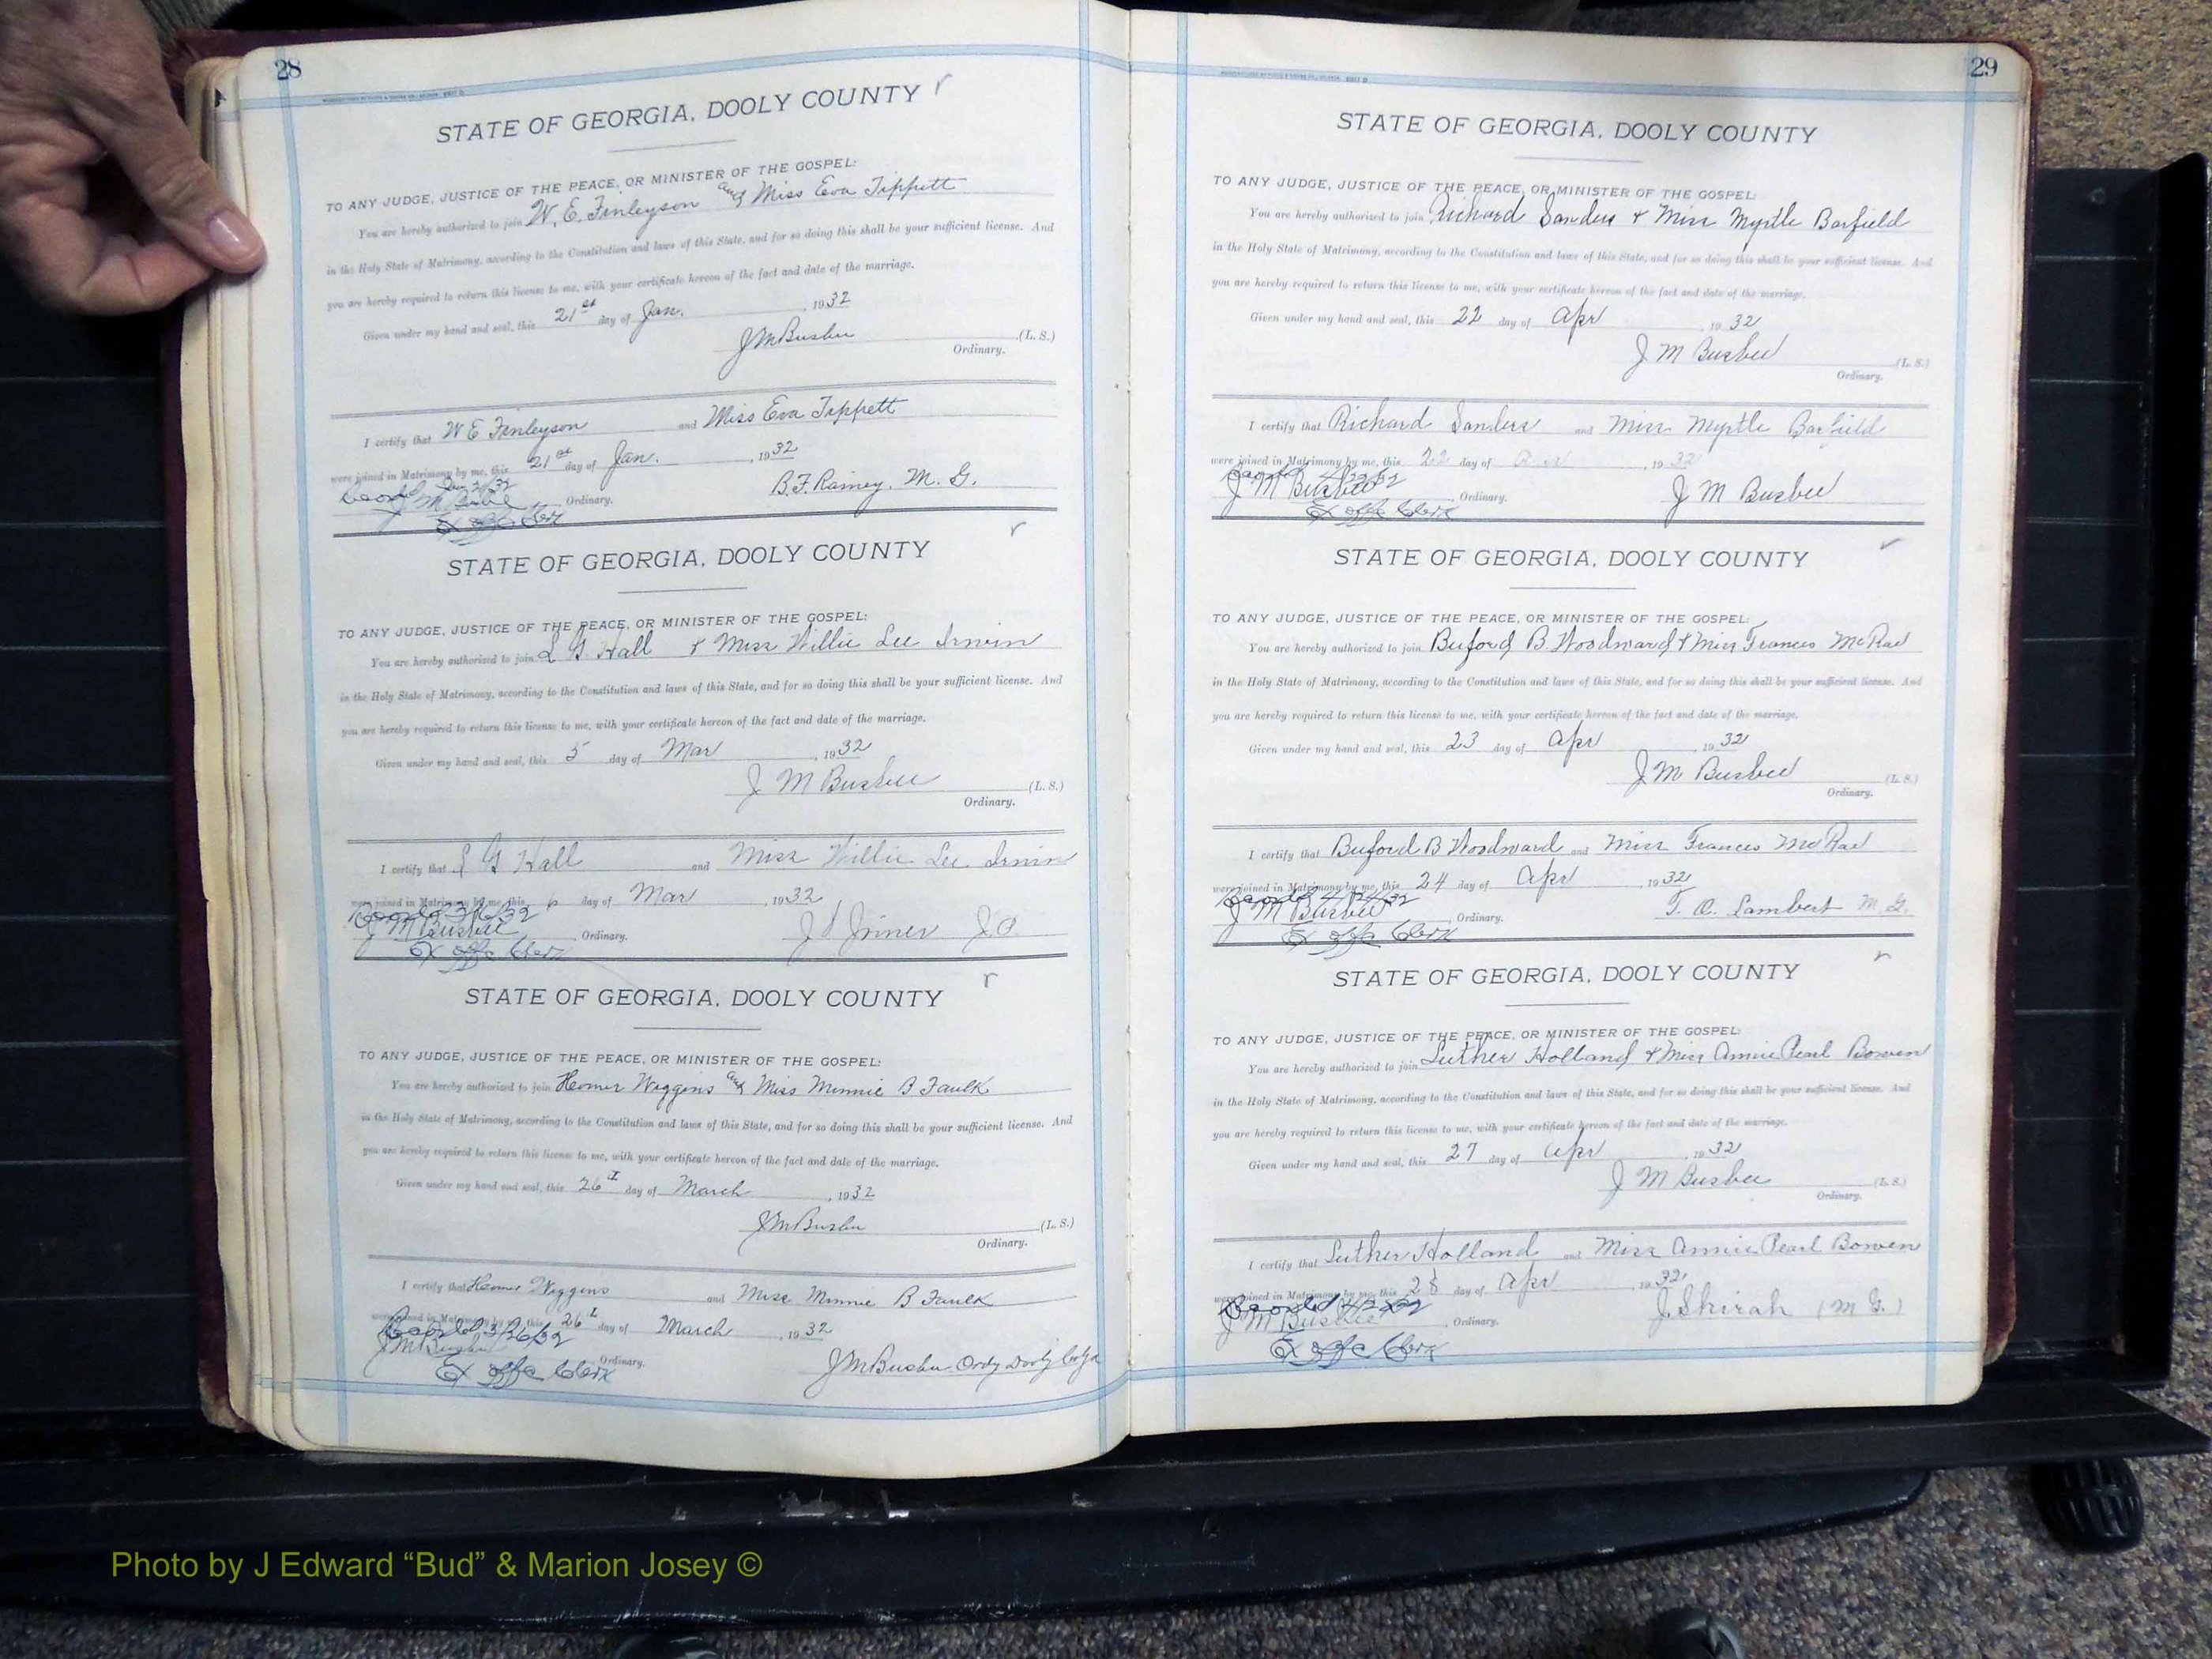 28
STATE OF GEORGIA, DOOLY COUNTY
TO ANY JUDGE, JUSTICE OF THE PEACE, OR MINISTER OF THE GOSPEL:
You are hereby authorized to join W. E. Finleyson and Miss Eva Tippett
in the Holy State of Matrimony, according to the Constitution and laws of this State, and for so doing this shall be your sufficient license. And
you are hereby required to return this license to me, with your certificate hereon of the fact and date of the marriage.
Given under my hand and seal, this 21st day of Jan. , 1932
J M Busbee (L. S.)
Ordinary.
I certify that W E Finleyson and Miss Eva Tippett
were joined in Matrimony by me, this 21st day of Jan. , 1932
B. F. Rainey. M. G.
J M Busbee Ordinary.
Ex offo Clerk
STATE OF GEORGIA, DOOLY COUNTY
TO ANY JUDGE, JUSTICE OF THE PEACE, OR MINISTER OF THE GOSPEL:
You are hereby authorized to join L G Hall & Miss Willie Lee Irwin
in the Holy State of Matrimony, according to the Constitution and laws of this State, and for so doing this shall be your sufficient license. And
you are hereby required to return this license to me, with your certificate hereon of the fact and date of the marriage.
Given under my hand and seal, this 5 day of Mar , 1932
J M Busbee (L. S.)
Ordinary.
I certify that L G Hall and Miss Willie Lee Irwin
were joined in Matrimony by me, this 6 day of Mar , 1932
Recorded 3/6/32
J M Busbee Ordinary. J. P.
Ex offo Clerk
STATE OF GEORGIA, DOOLY COUNTY
TO ANY JUDGE, JUSTICE OF THE PEACE, OR MINISTER OF THE GOSPEL:
You are hereby authorized to join Homer Wiggins and Miss Minnie B Faulk
in the Holy State of Matrimony, according to the Constitution and laws of this State, and for so doing this shall be your sufficient license. And
you are hereby required to return this license to me, with your certificate hereon of the fact and date of the marriage.
Given under my hand and seal, this 26th day of March , 1932
J M Busbee (L. S.)
Ordinary.
I certify that Homer Wiggins and Miss Minnie B Faulk
were joined in Matrimony by me, this 26th day of March , 1932
Recorded 3/26/32
J M Busbee Ordinary. J M Busbee Ordy Dooly Co Ga
Ex offo Clerk
29
STATE OF GEORGIA, DOOLY COUNTY
TO ANY JUDGE, JUSTICE OF THE PEACE, OR MINISTER OF THE GOSPEL:
You are hereby authorized to join Richard Sanders & Miss Myrtle Barfield
in the Holy State of Matrimony, according to the Constitution and laws of this State, and for so doing this shall be your sufficient license. And
you are hereby required to return this license to me, with your certificate hereon of the fact and date of the marriage.
Given under my hand and seal, this 22 day of Apr , 1932
J M Busbee (L. S.)
Ordinary.
I certify that Richard Sanders and Miss Myrtle Barfield
were joined in Matrimony by me, this 22 day of , 1932
Recorded 4/22/32
J M Busbee Ordinary. J M Busbee
Ex offo Clerk
STATE OF GEORGIA, DOOLY COUNTY
TO ANY JUDGE, JUSTICE OF THE PEACE, OR MINISTER OF THE GOSPEL:
You are hereby authorized to join Buford B. Woodward & Miss Frances McRae
in the Holy State of Matrimony, according to the Constitution and laws of this State, and for so doing this shall be your sufficient license. And
you are hereby required to return this license to me, with your certificate hereon of the fact and date of the marriage.
Given under my hand and seal, this 23 day of Apr , 1932
J M Busbee (L. S.)
Ordinary.
I certify that Buford B Woodward and Miss Frances McRae
were joined in Matrimony by me, this 24 day of Apr , 1932
Recorded 4/24/32
J M Busbee Ordinary. T. O. Lambert M. G.
Ex offo Clerk
STATE OF GEORGIA, DOOLY COUNTY
TO ANY JUDGE, JUSTICE OF THE PEACE, OR MINISTER OF THE GOSPEL:
You are hereby authorized to join Luther Holland & Miss Annie Pearl Bowen
in the Holy State of Matrimony, according to the Constitution and laws of this State, and for so doing this shall be your sufficient license. And
you are hereby required to return this license to me, with your certificate hereon of the fact and date of the marriage.
Given under my hand and seal, this 27 day of Apr , 1932
J M Busbee (L. S.)
Ordinary.
I certify that Luther Holland and Miss Annie Pearl Bowen
were joined in Matrimony by me, this 28 day of Apr , 1932
J M Busbee Ordinary. J. Shirah (M G.)
Ex offo Clerk
Photo by J Edward “Bud” & Marion Josey ©